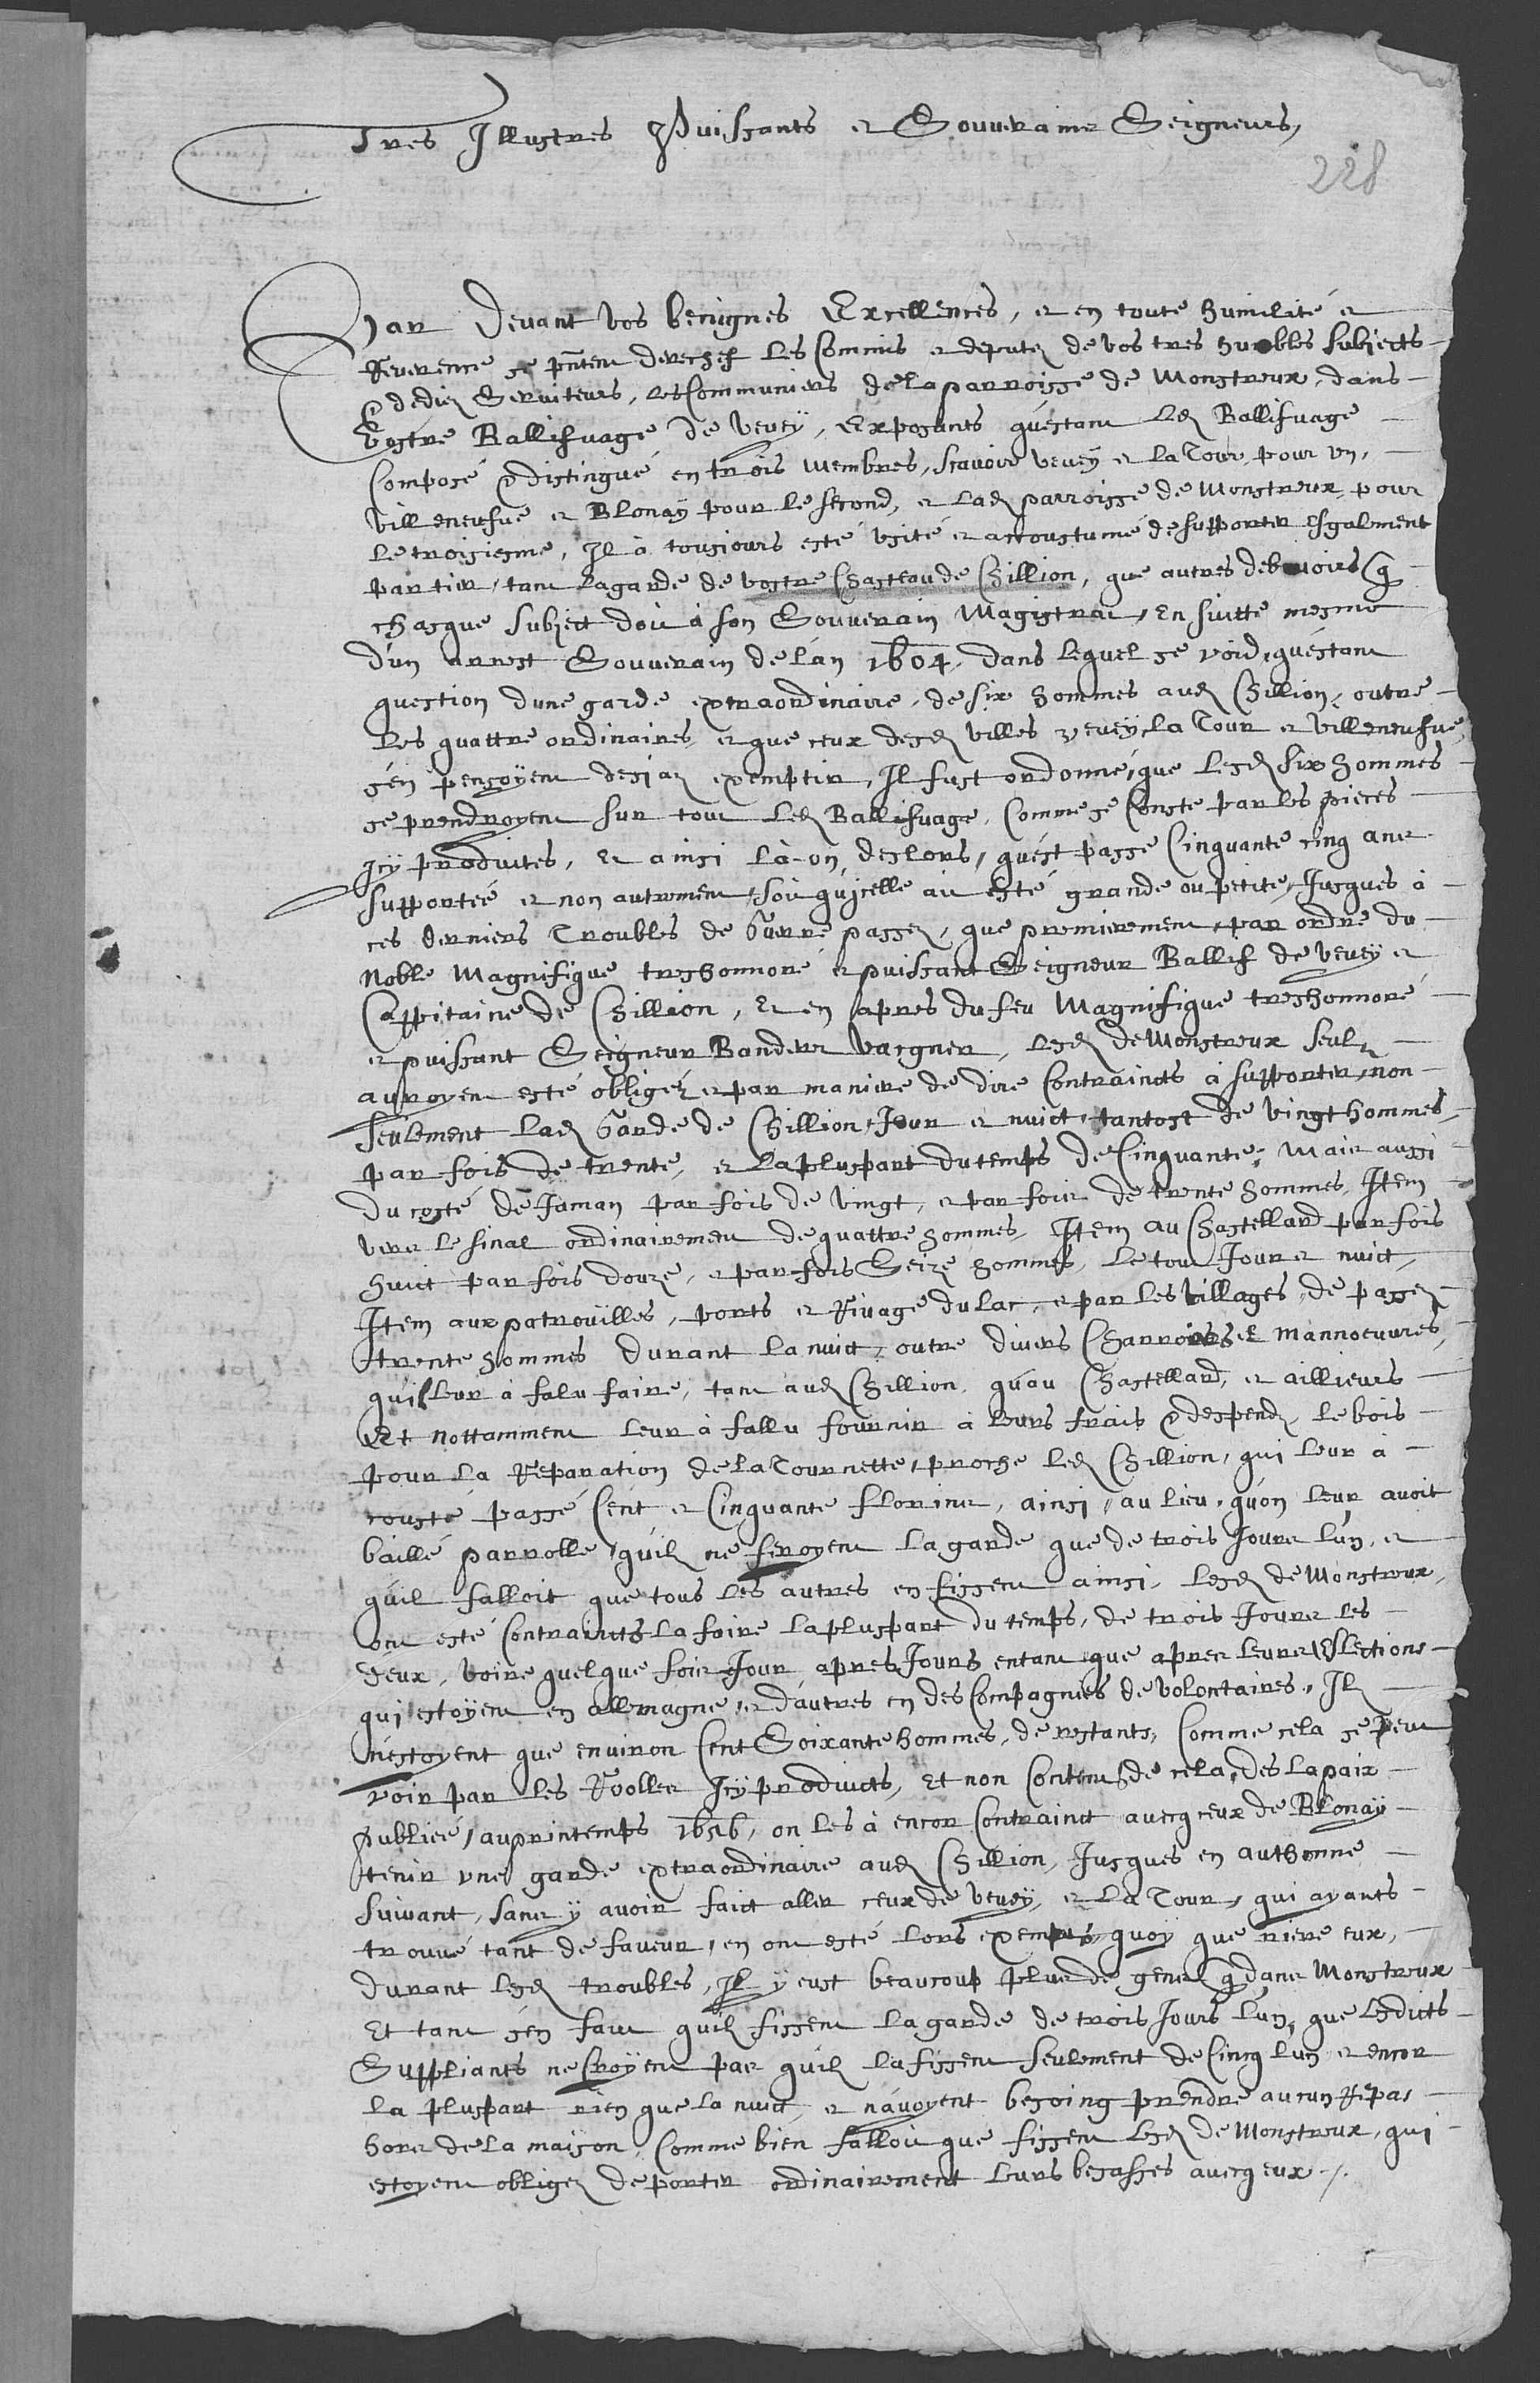 Tres Illustres Puissants et Souverains Seigneurs,
228
Par devant vos benignes Excellences, et en toute humilité et
Reverence se pñtent derechef les Commis et deputez de vos tres humbles subjects
& dediez Serviteurs, les Communiers de la parroisse de Monstreux, dans
Vostre Ballifvage de Vevey, Exposants qu'estant led Ballifvage
Composé & distingué en trois membres, scavoir Vevey et la Tour pour un,
Villeneufve et Blonay pour le second, et lad parroisse de Monstreux pour
le troisiesme, Il à tousiours esté usité et accoustumé de supporter esgalment
par tier, tant la garde de vostre Chasteau de Chillion, que autres debvoirs q
chasque subject doit à son Souverain Magistrat, en suitte mesme
d'un arrest Souverain de l'an 1604, dans lequel se void, qu'estant
question d'une garde extraordinaire, de six hommes aud Chillion, outre
les quattre ordinaires, et que ceux desd villes Vevey, la Tour et Villeneufve,
s'en pensoyent desjaz exemptir, Il fust ordonné, que lesd six hommes
se prendroyent sur tout led Ballifvage, Comme se Conste par les pieces
Icy produites, Et ainsi l'à-on deslors, qu'est passe Cinquante cinq ans
supportée et non autrement, soit qu'icelle ait esté grande ou petite, Jusques à
ces derniers Troubles de Guerre passez, que premierement, par ordre du
Noble Magnifique treshonnoré et puissant Seigneur Ballif de Vevey et
Cappitaine de Chillion, Et en apres du feu Magnifique treshonnoré
et puissant Seigneur Banderet Vagner, lesd de Monstreux seulz
auroyent esté obligéz et par maniere de dire Contraincts à supporter, non
seulement lad Garde de Chillion, Jour et nuict, tantost de vingt hommes,
par fois de trente, et la pluspart du temps de Cinquante, Mais aussi
du costé de Jaman par fois de vingt, et par fois de trente hommes, Item
vers le sinal ordinairement de quattre hommes, Item au Chastellard par fois
huict par fois douze, et par fois Seize hommes, le tout Jour et nuict,
Item aux patrouilles, ports et Rivage du lac, et par les villages, de passez
trente hommes durant la nuict, outre divers Charrois et mannoeuvres,
qu'il leur à falu faire, tant aud Chillion, qu'au Chastellard, et aillieurs
Et nottamment leur à fallu fournir à leurs frais & despendz, le bois
pour la Reparation de la Tournette, proche led Chillion, qui leur à
cousté passé Cent et Cinquante florins, ainsi, au lieu, qu'on leur avoit
baillé parrolle, qu'ilz ne feroyent la garde que de trois Jours l'un, et
qu'il falloit que tous les autres en fissent ainsi, lesd de Monstreux,
ont esté Contraincts la faire la pluspart du temps, de trois Jours les
deux, voire quelque fois Jour apres Jours entant que apres leurs Eslections
qui estoyent en allemagne, et d'autres en des Compagnies de volontaires, Ilz
n'estoyent que environ Cent Soixante hommes, de restants, Comme cela se peut
voir par les Roolles Icy produicts, Et non Contents de cela, des la paix
publiée, au printemps 1656, on les à encor Contrainct avecq ceux de Blonay
tenir une garde extraordinaire aud Chillion, Jusques en authonne
suivant, sans y avoir faict aller ceux de Vevey, et la Tour, qui ayants
trouvé tant de faveur, en ont esté lors exempts, quoy que riere eux,
durant lesd troubles, Il y eust beaucoup plus de gens q dans Monstreux
Et tant s'en faut qu'ilz fissent la garde de trois Jours l'un, que lesdicts
Suppliants ne Croyent pas qu'ilz la fissent seulement de Cincq l'un, et encor
la pluspart rien que la nuict, et n'avoyent besoing prendre aucun Repas
hors de la maison, Comme bien falloit que fissent lesd de Monstreux, qui
estoyent obligez de porter ordinairement leurs besasses avecq eux.